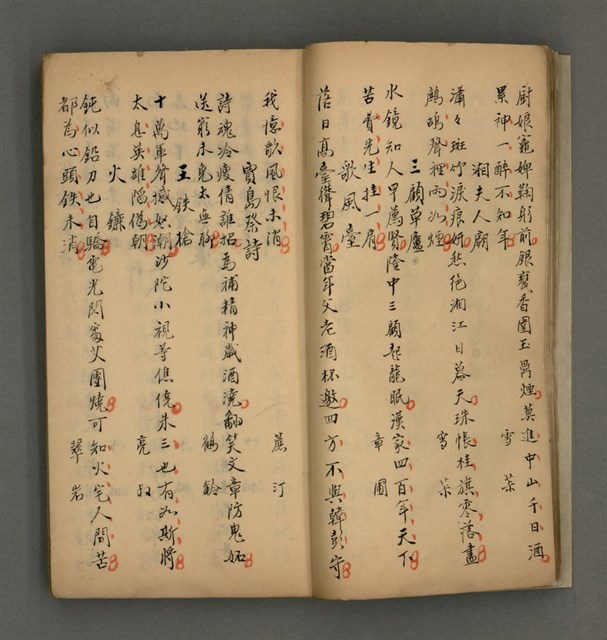 厨娘竈婢鞠躬前銀甕香圍玉鬲煙莫進中山千日酒
累神一醉不知年　雪菜
湘夫人廟
瀟々斑竹淚痕妍愁絕湘江日暮天珠帳桂旗零落盡
鷓鴣聲裡雨如煙　雪菜
三顧草廬
水鏡知人早薦賢隆中三顧起龍眠漢家四百年天下
苦費先生挂一肩　章圃
歌風臺
落日高臺聳碧霄當年父老酒杯邀四方不與韓彭守
我憶歌風恨未消　蕉汀
賈島祭詩
詩魂冷瘦倩誰招爲補精神歲酒澆翻笑文章防鬼妬
送窮未免太無聊　鶴齡
王鉄槍
十萬軍齊撼怒朝沙陀小視等僬僥朱三也有如斯將
太息英雄隱僞朝　亮叔
火鐮
鈍似鉛刀也自驕電光閃處艾團燒可知火宅人間苦
都為心頭鉄未消　翠岩